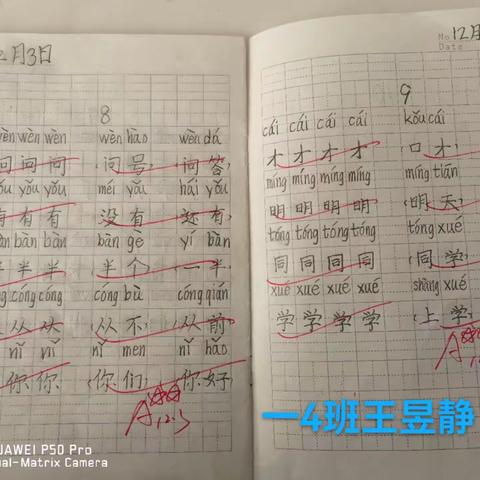 月3日
8
wèn wèn wèn wèn hào wèn dá
问问问(问号)(问答)
yǒu yǒu méi yǒu hái yǒu
有有有(没有)(还有)
bàn bàn bàn ge yí bàn
半半半(半个)(一半)
cóng cóng cóng bù cóng qián
从从从(从不)(从前)
nǐ nǐ nǐ men nǐ hǎo
你你(你们)(你好)
A
12.3
No 12月
Date
9
cái cái cái cái kǒu cái
才才才才(口才)
míng míng míng míng míng tiān
明明明明(明天)
tóng tóng tóng tóng tóng xué
同同同同(同学)
xué xué xué xué shàng xué
学学学学(上学)
A
一4班王昱静
HUAWEI P50 Pro
Dual-Matrix Camera